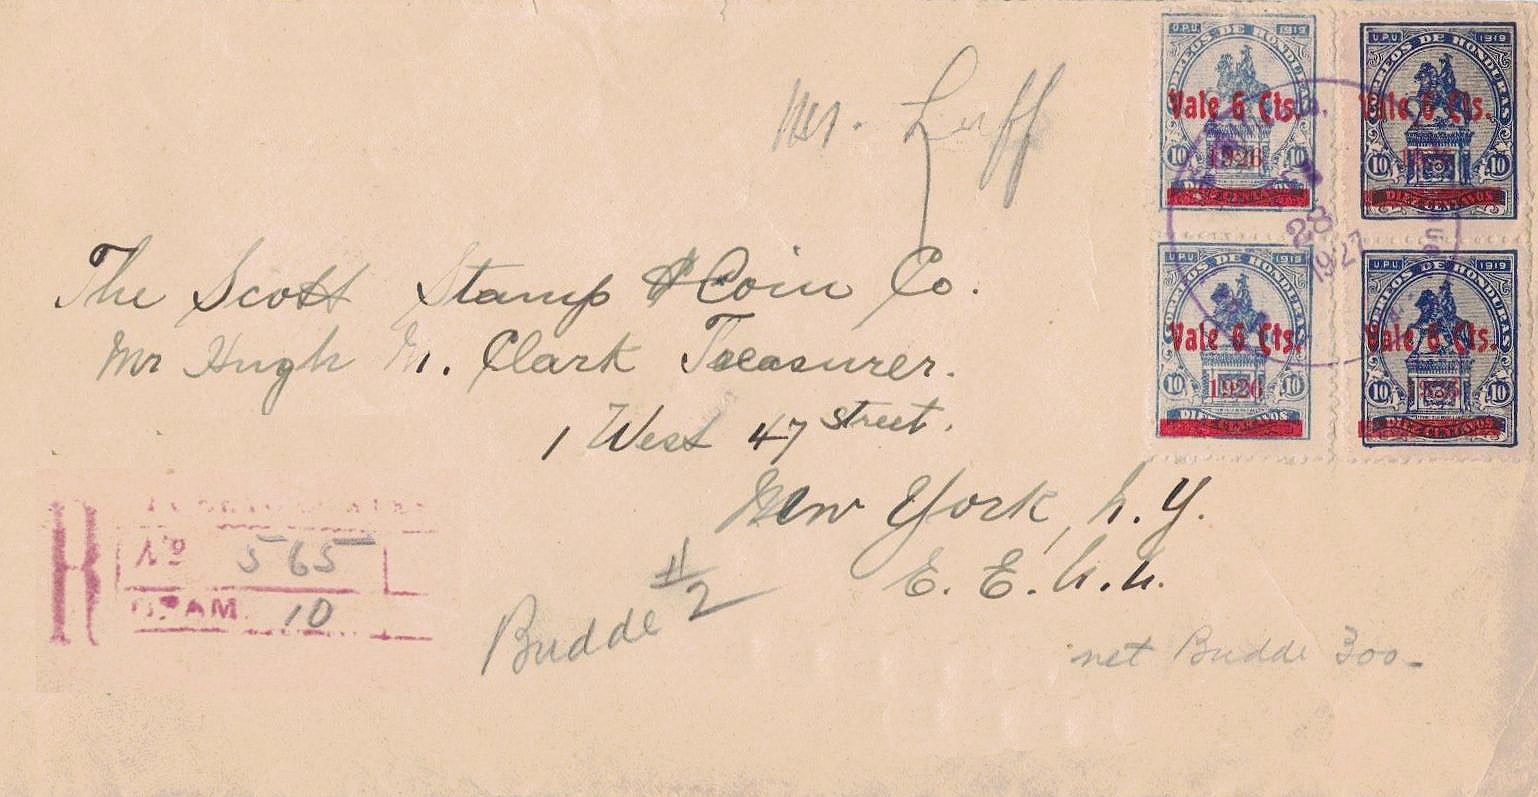 Mr. Luff
The Scott Stamp & Coin Co.
Mr Hugh M. Clark Treasurer.
1 West 47 Street.
New York, N.Y.
E. E. U. U.
Budde #2
net Budde 300-
R
No 565
GRAM. 10
U.P.U. 1919
CORREOS DE HONDURAS
Vale 6 Cts.
1926
10 10
DIEZ CENTAVOS
U.P.U. 1919
CORREOS DE HONDURAS
Vale 6 Cts.
10 10
DIEZ CENTAVOS
U.P.U. 1919
CORREOS DE HONDURAS
Vale 6 Cts.
1926
10 10
DIEZ CENTAVOS
U.P.U. 1919
CORREOS DE HONDURAS
Vale 6 Cts.
10 10
DIEZ CENTAVOS
28
1927